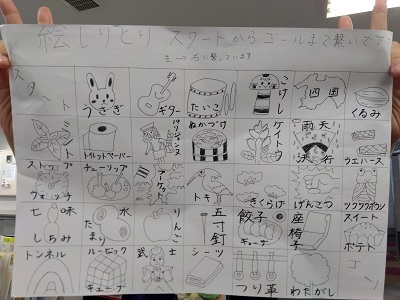 絵しりとり スタートからゴールまで繋いで下
左→右に繋っています
スタート
うさぎ
ギター
たいこ
こけし
四国
くるみ
ミント
トイレットペーパー
パリジェンヌ
ぬかづけ
ケイト
雨天決行
ウエハース
ストップウォッチ
チューリップ
トキ
きくらげ
げんこつ
ツクツクボウシ
七味
しちみ
水たまり
りんご
五寸釘
餃子
ギョーザ
座椅子
スイートポテト
トンネル
ルービックキューブ
武士
シーツ
つり革
わたがし
ゴール